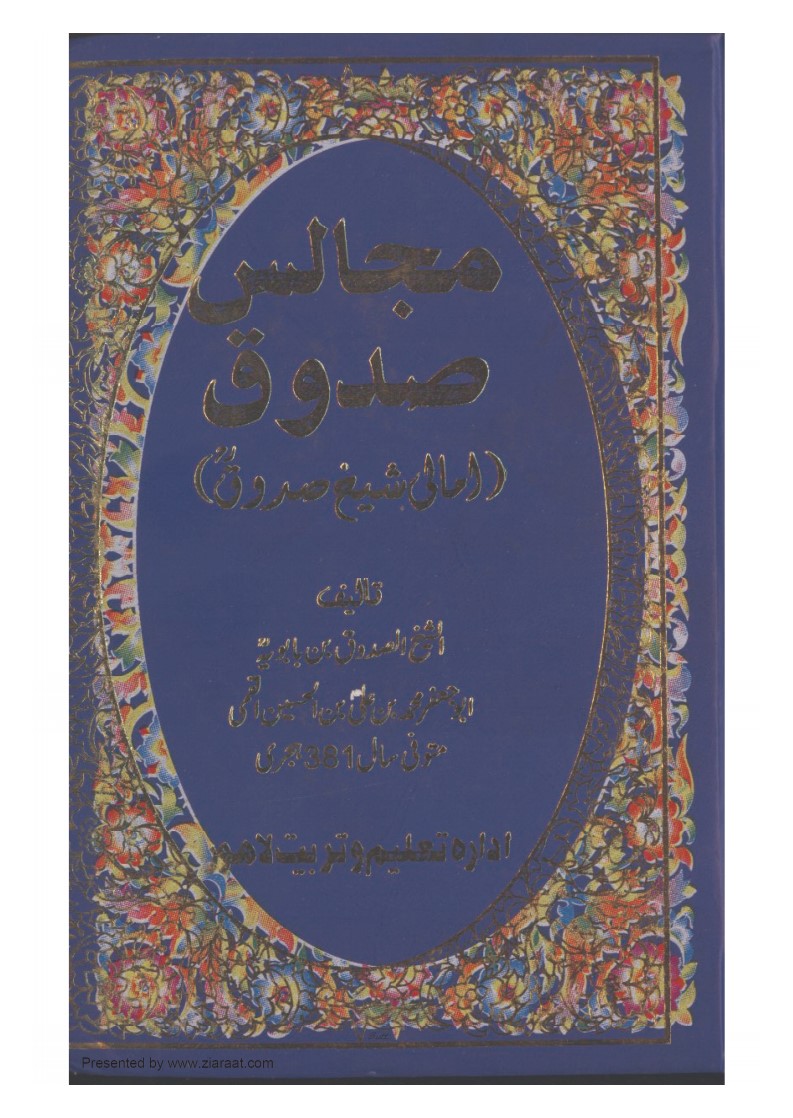 مجالس
صدوق
(امالی شیخ صدوقؒ)
تالیف
الشیخ الصدوق بن بابویہ
ابو جعفر محمد بن علی بن الحسین القمی
متوفی سال 381 ہجری
ادارہ تعلیم و تربیت لاہور
Presented by www.ziaraat.com